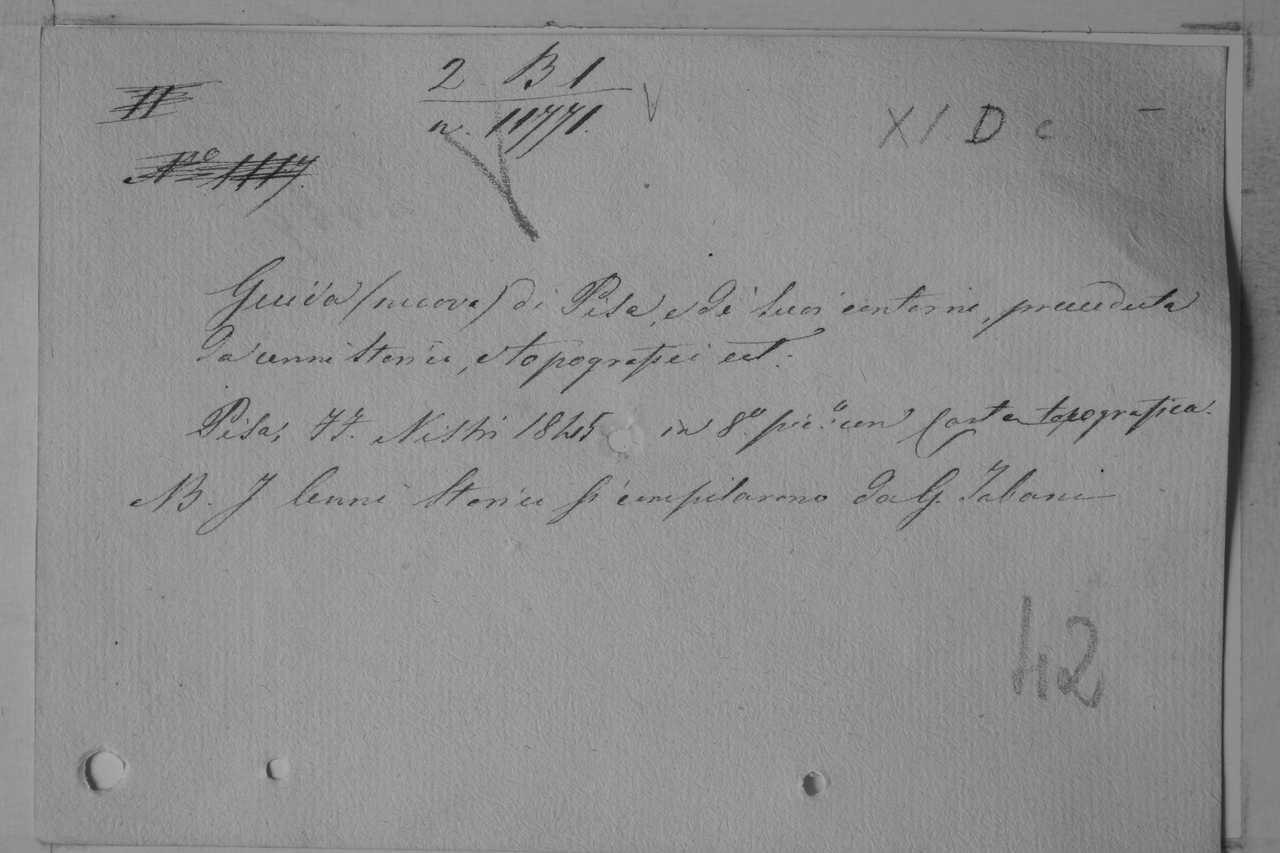 II
2 B 1
n. 11771.
V
XI D c -
No 1117.
Guida (nuova) di Pisa, e de' suoi contorni, preceduta
da cenni storici, e topografici ect.
Pisa, FF. Nistri 1845 in 8.º pic.º con Carta topografica.
NB. I Cenni Storici si compilarono da G. Tabani
42